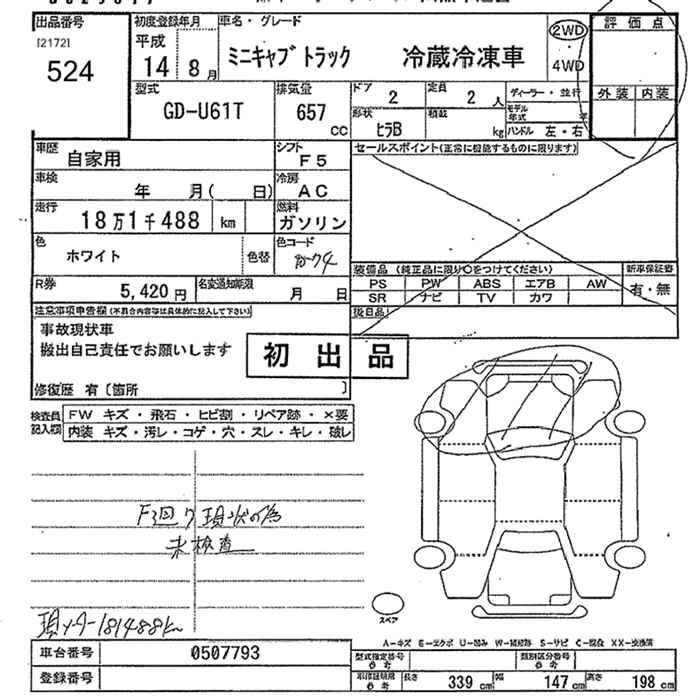 出品番号
[2172]
524
初度登録年月
平成
14 8月
車名・グレード
ミニキャブトラック 冷蔵冷凍車
2WD
4WD
評価点
外装 内装
型式
GD-U61T
排気量
657
CC
ドア
2
定員
2 人
形状
ヒラB
積載
kg
ディーラー・並行
モデル
年式 年
ハンドル 左・右
車歴
自家用
シフト
F5
セールスポイント(正常に機能するものに限ります)
車検
年 月( 日)
冷房
AC
走行
18万1千488 km
燃料
ガソリン
色
ホワイト
色替
色コード
装備品 (純正品に限り○をつけてください)
新車保証書
PS PW ABS エアB AW
SR ナビ TV カワ
有・無
後日品
R券
5,420円
名変通知期限
月 日
注意事項申告欄(不具合内容等は具体的に記入して下さい)
事故現状車
搬出自己責任でお願いします
初出品
修復歴 有〔箇所 〕
検査員
記入欄
FW キズ・飛石・ヒビ割・リペア跡・×要
内装 キズ・汚レ・コゲ・穴・スレ・キレ・破レ
F廻り現状の為
未検査
現メーター181488km
スペア
A-キズ E-エクボ U-凹み W-補修跡 S-サビ C-腐食 XX-交換済
車台番号
0507793
登録番号
型式指定番号
参考
類別区分番号
参考
車検証明限
参考
長さ 339 cm 幅 147 cm 高さ 198 cm